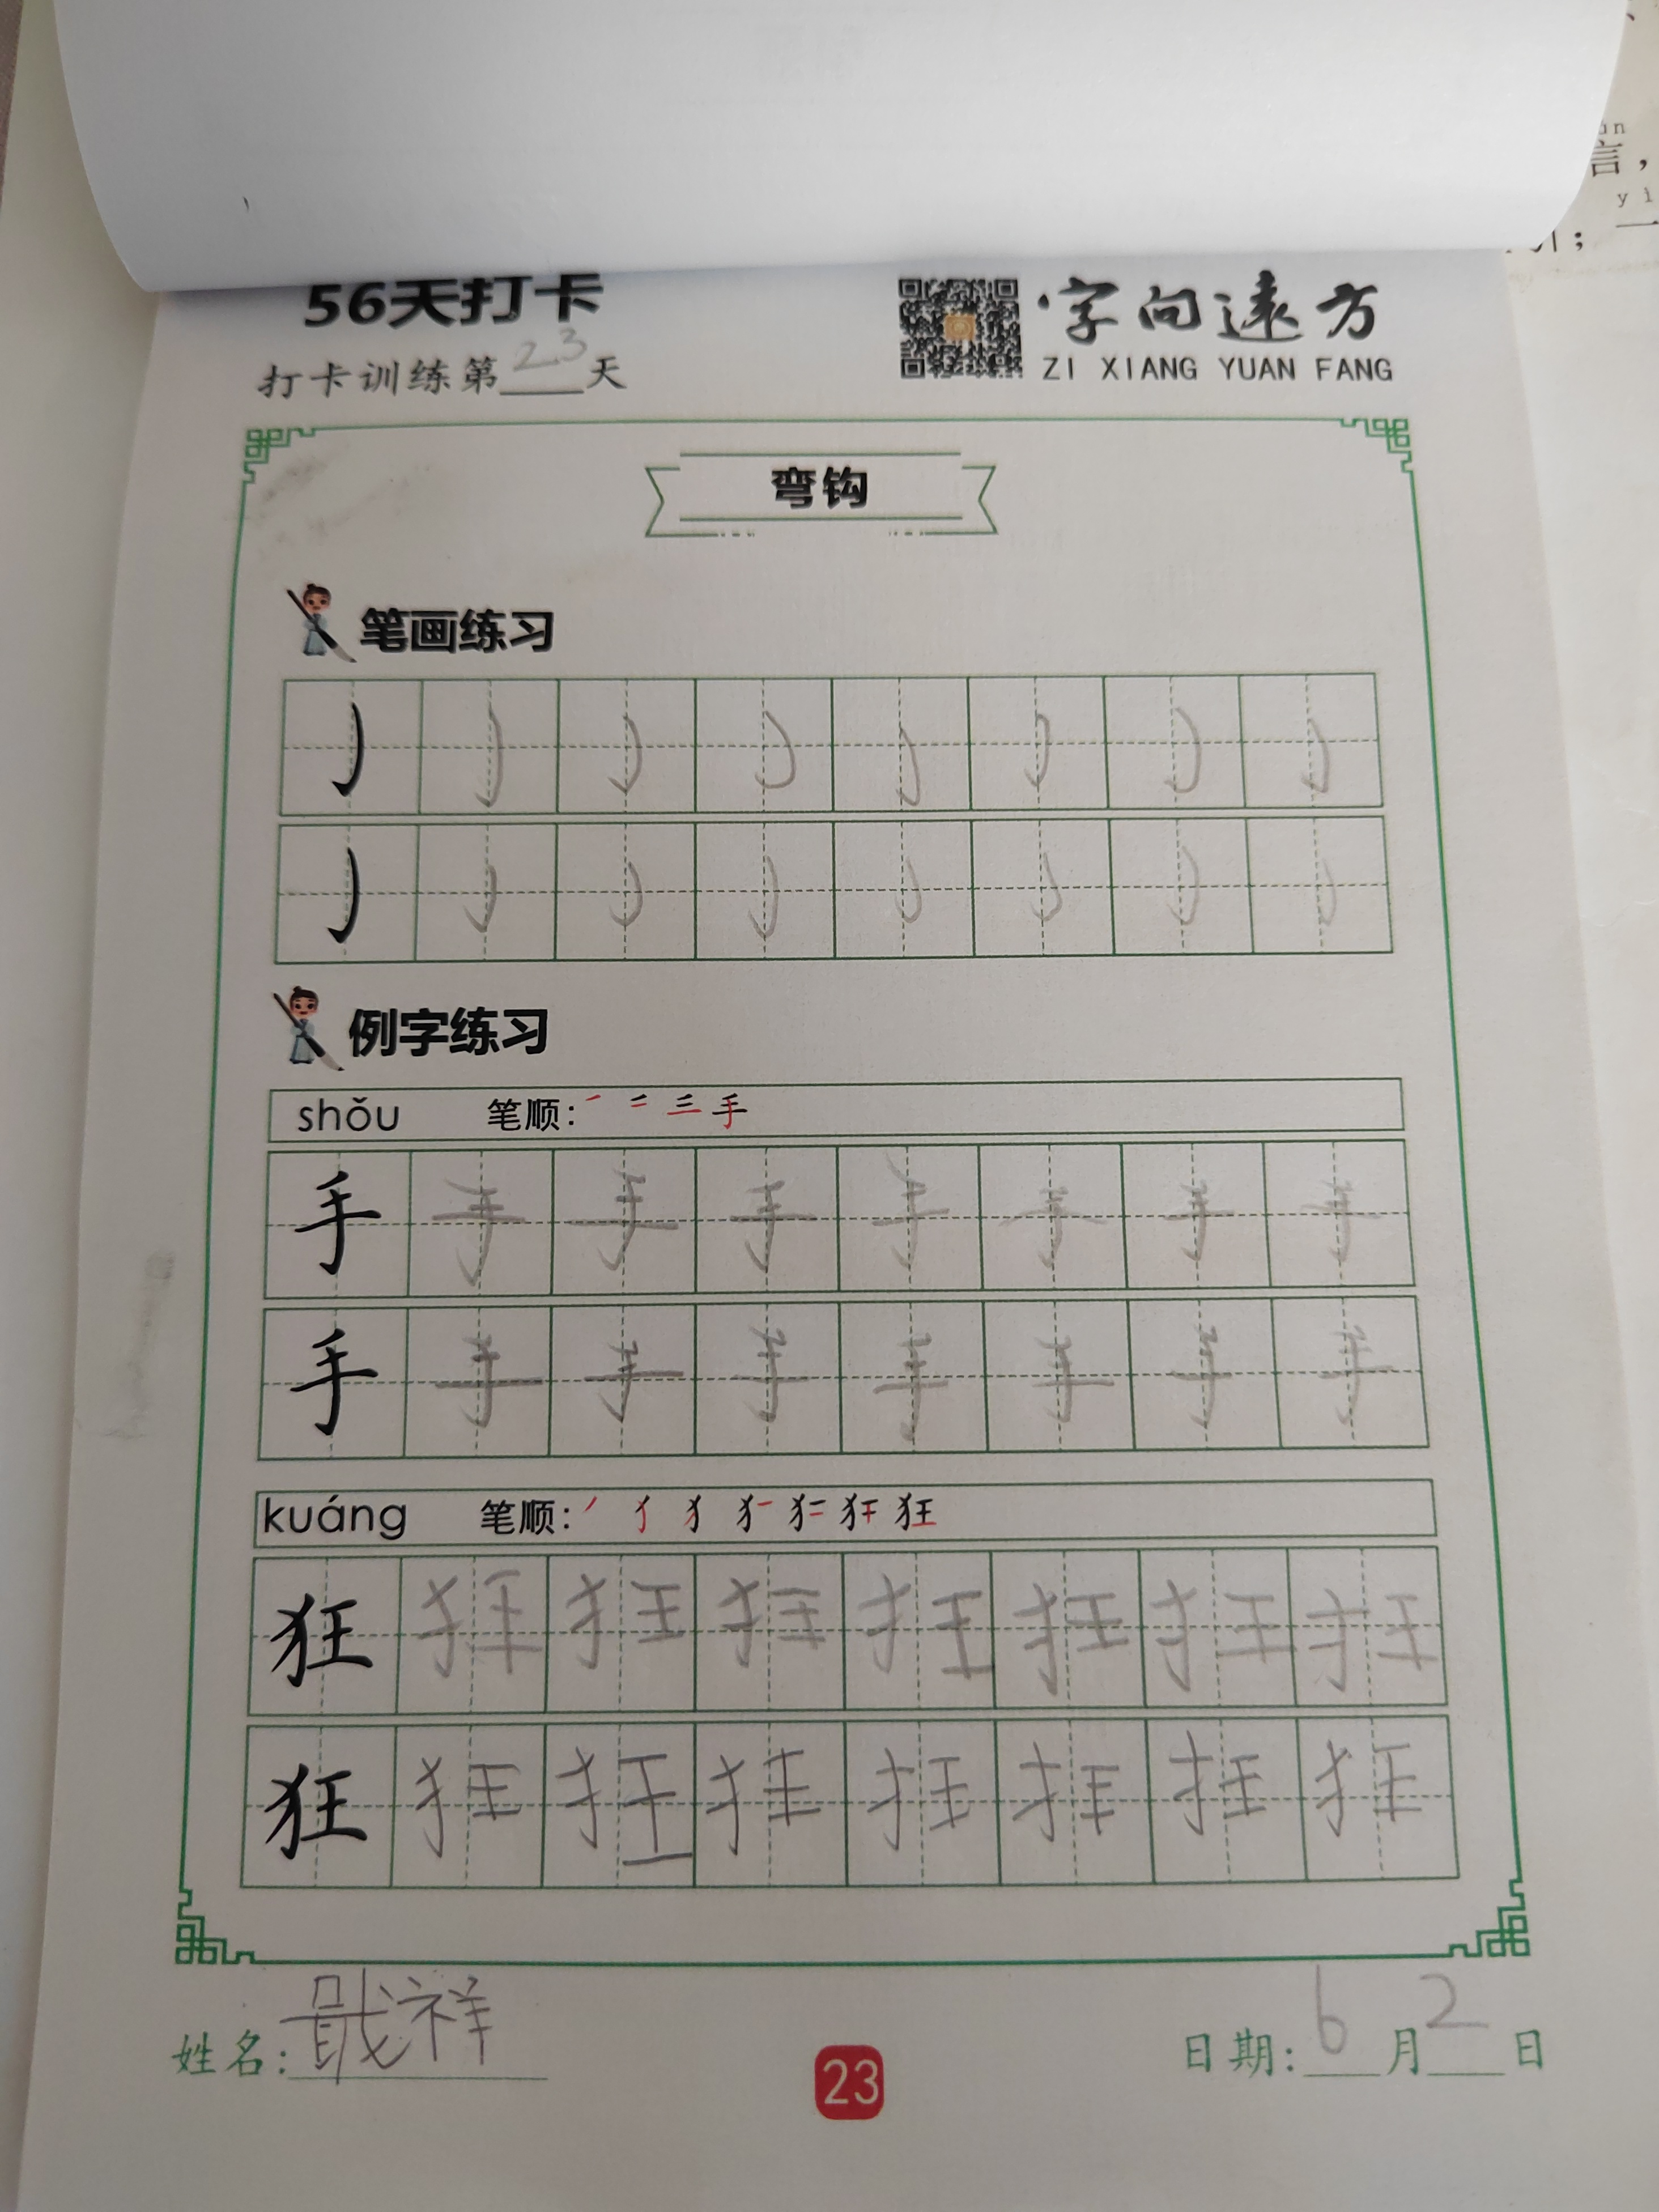 ún
言，
yì
；一
56天打卡
字向远方
打卡训练第23天
ZI XIANG YUAN FANG
弯钩
笔画练习
例字练习
shǒu 笔顺： 手
手 手 手 手 手 手 手 手
手 手 手 手 手 手 手 手
kuáng 笔顺： 狂
狂 狂 狂 狂 狂 狂 狂 狂
狂 狂 狂 狂 狂 狂 狂 狂
姓名：祥
日期：6月2日
23